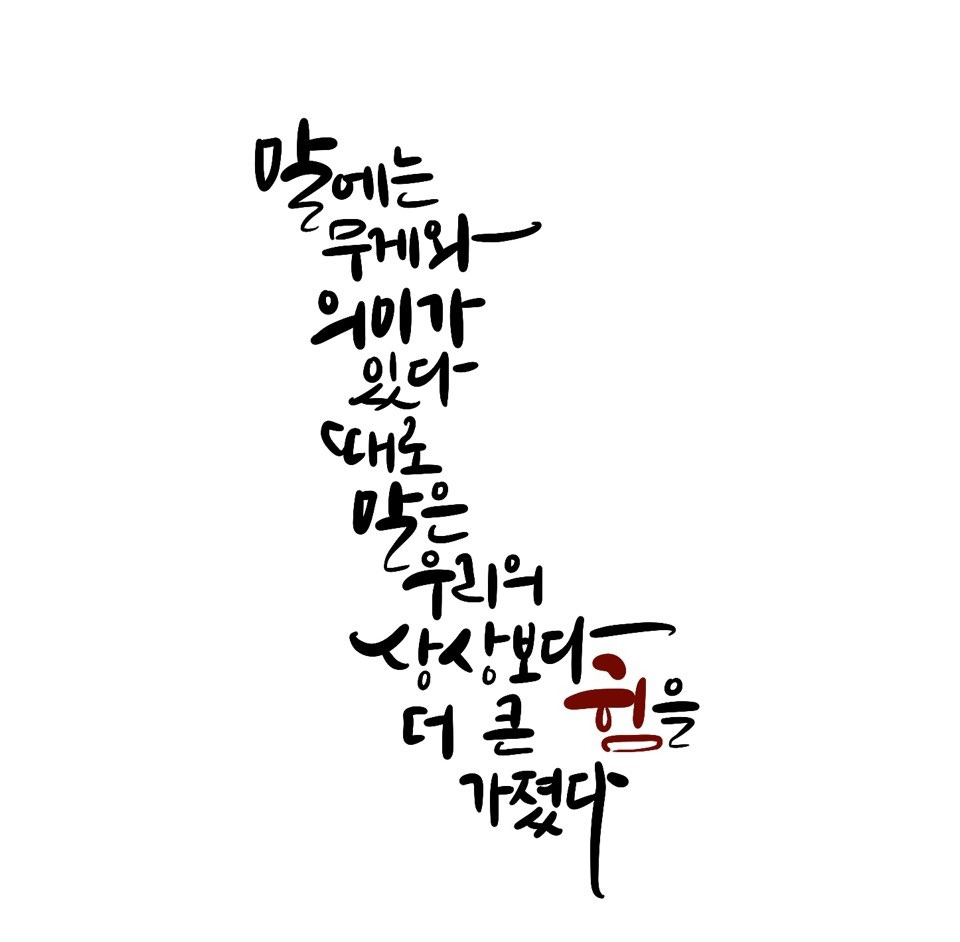 말에는
무게와
의미가
있다
때로
말은
우리의
상상보다
더 큰 힘을
가졌다